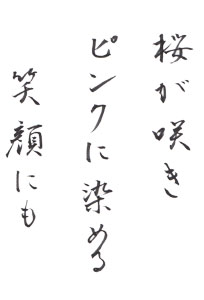 桜が咲き
ピンクに染める
笑顔にも